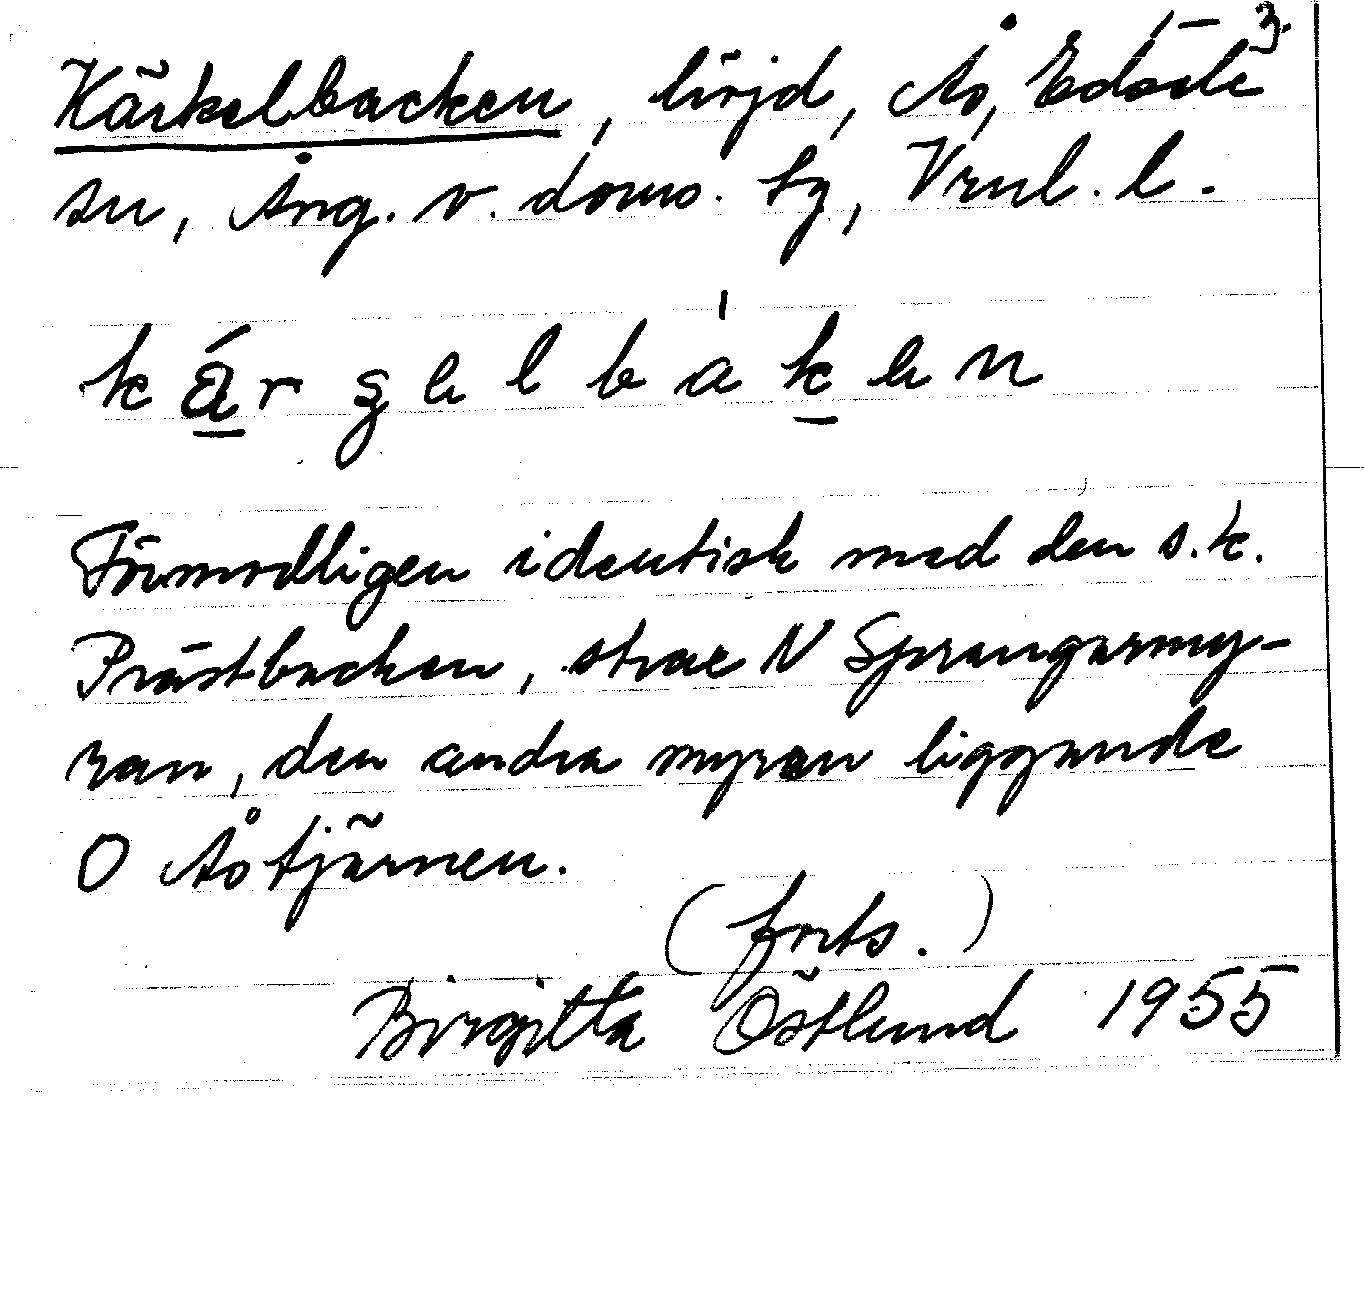 3.
Kärkelbacken, höjd, Ås, Edsele
sn, Ång. v. doms. fg, Vnl. l.
kärgelbaken
Förmodligen identisk med den s.k.
Prästbacken, strax N Sprängarmy-
ran, den andra myran liggande
O Åstjärnen.
(forts.)
Birgitta Östlund 1955